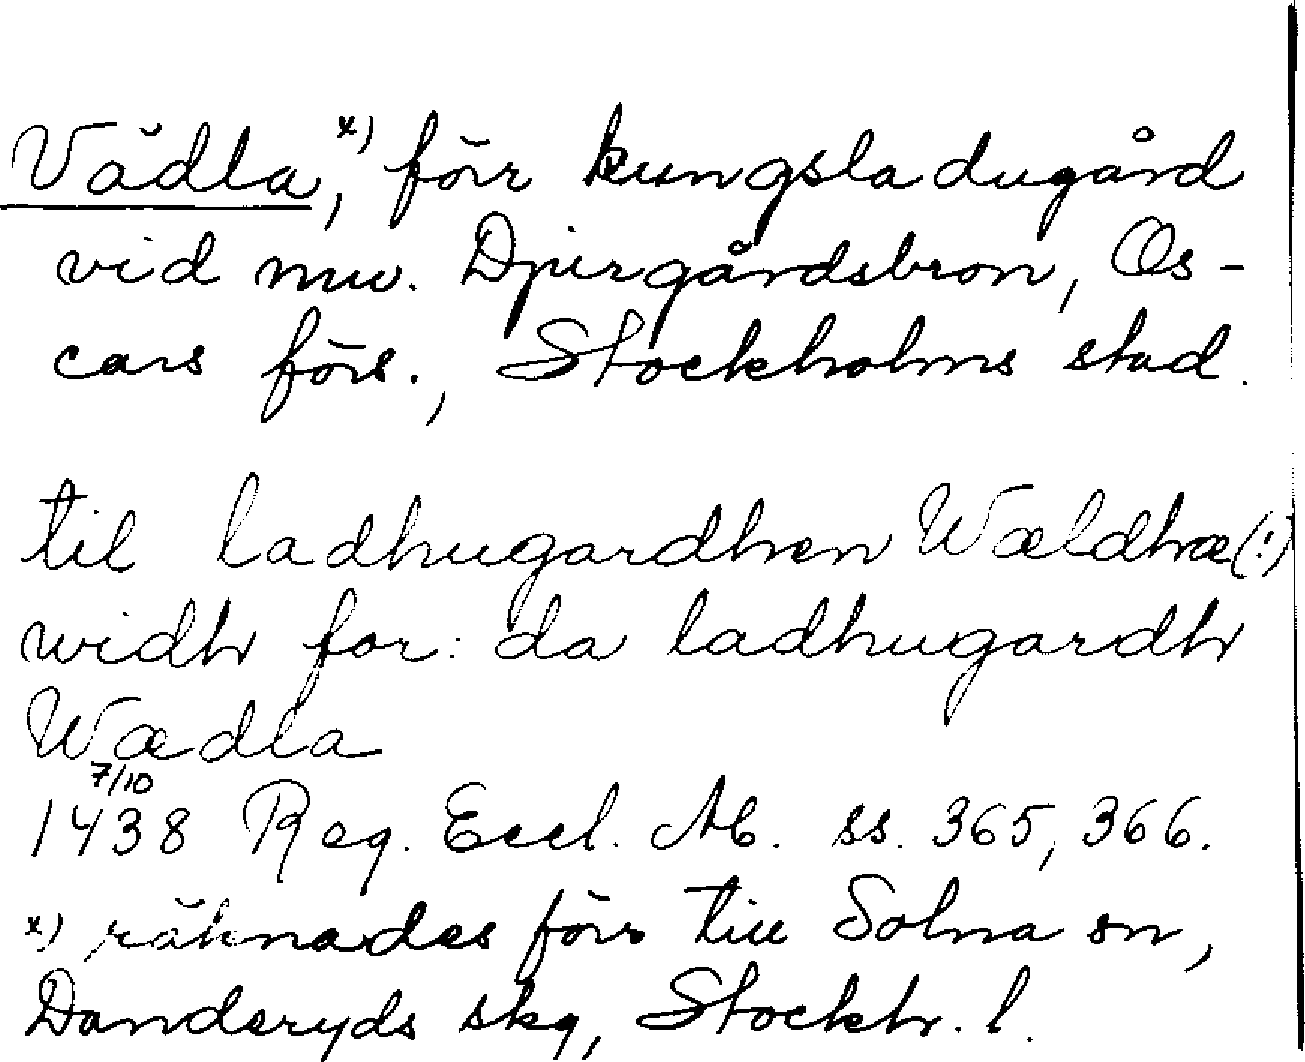 Vädla,ˣ⁾ förr kungsladugård
vid nuv. Djurgårdsbron, Os-
cars förs., Stockholms stad.
til ladhugardhen Wældhæ(!)
widh for: da ladhugardh
Wædla
7/10
1438 Reg. Eccl. Ab. ss. 365, 366.
x) räknades förr till Solna sn,
Danderyds skg, Stockh. l.